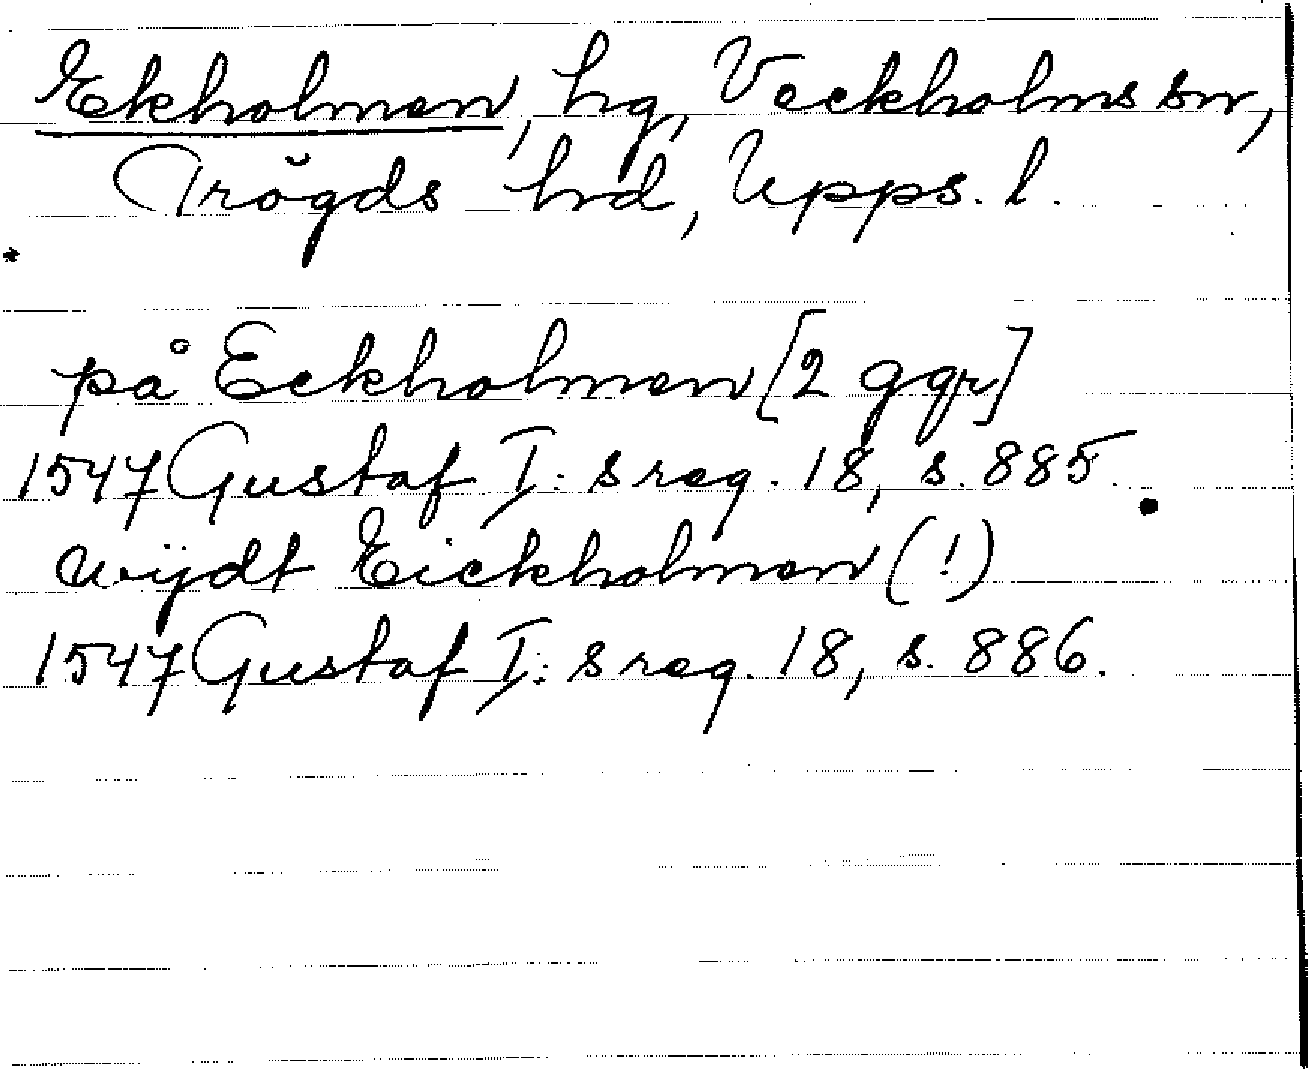 Ekholmen, hg, Veckholms sn,
Trögds hd, Upps. l.
på Eckholmen [2 ggr]
1547 Gustaf I:s reg. 18, s. 885.
wijdt Eickholmen (!)
1547 Gustaf I:s reg. 18, s. 886.